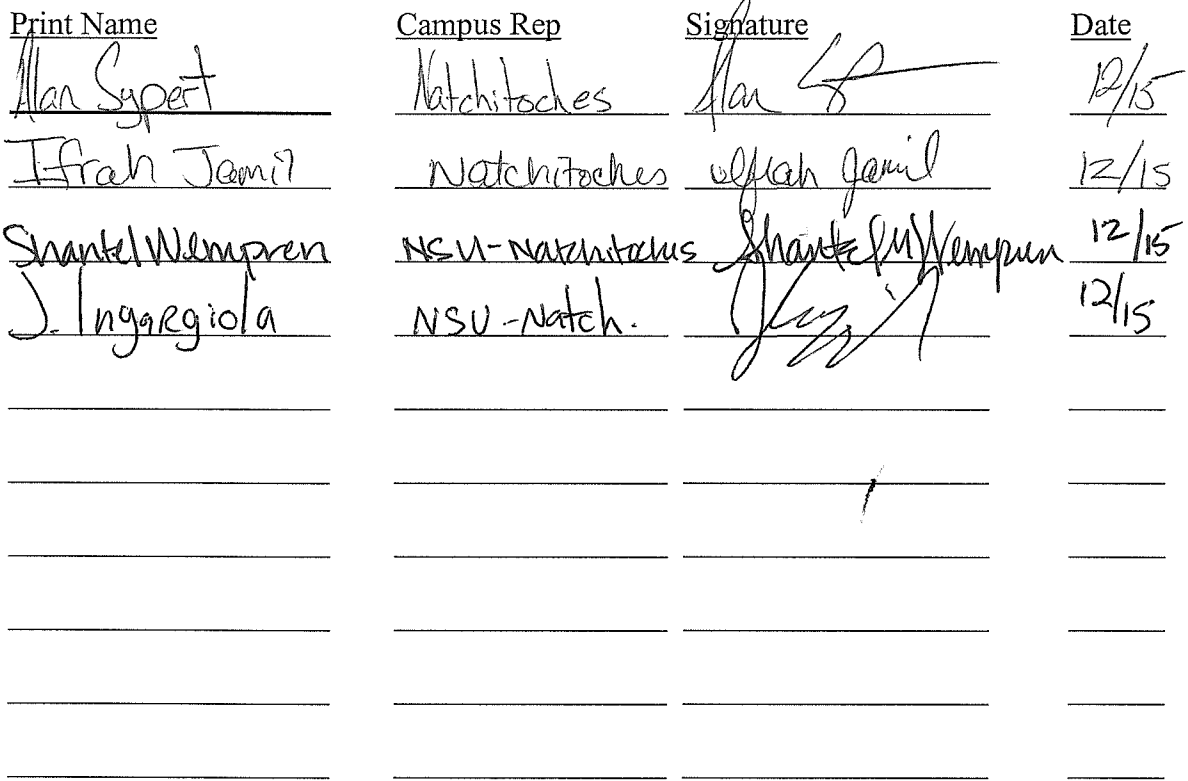 Print Name Campus Rep Signature Date
Alan Sypert Natchitoches Alan 12/15
Ifrah Jamil Natchitoches Ifrah Jamil 12/15
Shantel Wempren NSU-Natchitoches Shantel M Wempren 12/15
J. Ingargiola NSU-Natch. 12/15